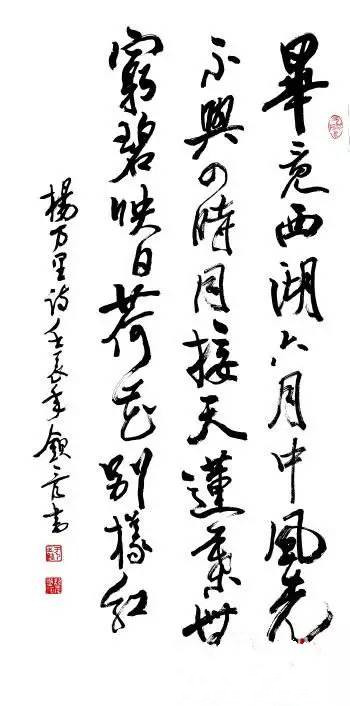 畢竟西湖六月中風光
不與四時同接天蓮葉無
窮碧映日荷花別樣紅
楊万里詩壬辰年書